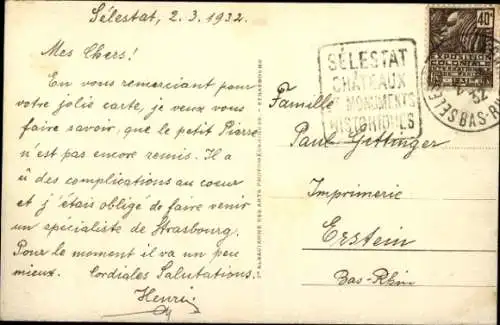 Sélestat, 2.3.1932.
Mes Chers!
En vous remerciant pour
votre jolie carte, je veux vous
faire savoir, que le petit Pierre
n'est pas encore remis. Il a
û des complications au coeur
et j'étais obligé de faire venir
un spécialiste de Strasbourg.
Pour le moment il va un peu
mieux. Cordiales Salutations.
Henri
SÉLESTAT
CHÂTEAUX
MONUMENTS
HISTORIQUES
40
BAS-R
Famille
Paul Gettinger
Imprimerie
Erstein
Bas-Rhin